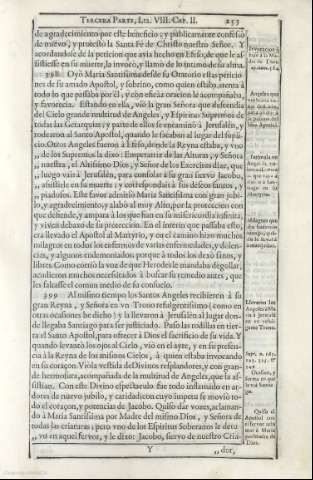 TERCERA PARTE, LIB. VIII. CAP. II. 253
de agradecimiento por este beneficio; y publicamente confesò
de nuevo, y protestò la Santa Fè de Christo nuestro Señor. Y
acordandose de la peticion que avia hecho en Efeso, de que le as-
sistiesse en su muerte, la invocò, y llamò de lo intimo de su alma.
398. Oyò Maria Santissima desde su Oratorio estas peticio-
nes de su amado Apostol, y sobrino, como quien estaba atenta à
todo lo que passaba por èl; y con eficàz oracion le acompañaba,
y favorecia. Estando en ella, viò la gran Señora que descendia
del Cielo grande multitud de Angeles, y Espiritus Supremos de
todas las Gerarquias; y parte de ellos se encaminò à Jerusalèn, y
rodearon al Santo Apostol, quando le sacaban al lugar del supli-
cio. Otros Angeles fueron à Efeso, donde la Reyna estaba, y uno
de los Supremos la dixo: Emperatriz de las Alturas, y Señora
nuestra, el Altissimo Dios, y Señor de los Exercitos dize, que
luego vais à Jerusalèn, para consolar à su gran siervo Jacobo,
assistirle en su muerte; y correspondais à sus deseos santos, y
piadosos. Este favor admitiò Maria Santissima con gran jubi-
lo, y agradecimiento; y alabò al muy Alto, por la proteccion con
que defiende, y ampara à los que fian en su misericordia infinita,
y viven debaxo de su proteccion. En el interin que passaba esto,
era llevado el Apostol al Martyrio, y en el camino hizo muchos
milagros en todos los enfermos de varias enfermedades, y dolen-
cias, y algunos endemoniados; porque à todos los dexò sanos, y
libres. Como corriò la voz de que Herodes le mandaba degollar,
acudieron muchos necessitados à buscar su remedio antes, que
les faltasse el comun medio de su consuelo.
399. Al mismo tiempo los Santos Angeles recibieron à su
gran Reyna, y Señora en un Trono refulgentissimo (como en
otras ocasiones he dicho) y la llevaron à Jerusalèn al lugar don-
de llegaba Santiago para ser justiciado. Puso las rodillas en tier-
ra el Santo Apostol, para ofrecer à Dios el sacrificio de su vida. Y
quando levantò los ojos al Cielo, viò en el ayre, y en su presen-
cia à la Reyna de los mismos Cielos, à quien estaba invocando
en su corazon. Viòla vestida de Divinos resplandores, y con gran-
de hermosura, acompañada de la multitud de Angeles, que la as-
sistian. Con este Divino espectaculo fue todo inflamado en ar-
dores de nuevo jubilo, y caridad; en cuyo impetu se moviò to-
do el corazon, y potencias de Jacobo. Quiso dar vozes, aclaman-
do à Maria Santissima por Madre del mismo Dios, y Señora de
todas las criaturas; pero uno de los Espiritus Soberanos le detu-
vo en aquel fervor, y le dixo: Jacobo, siervo de nuestro Cria-
Y ,, dor,